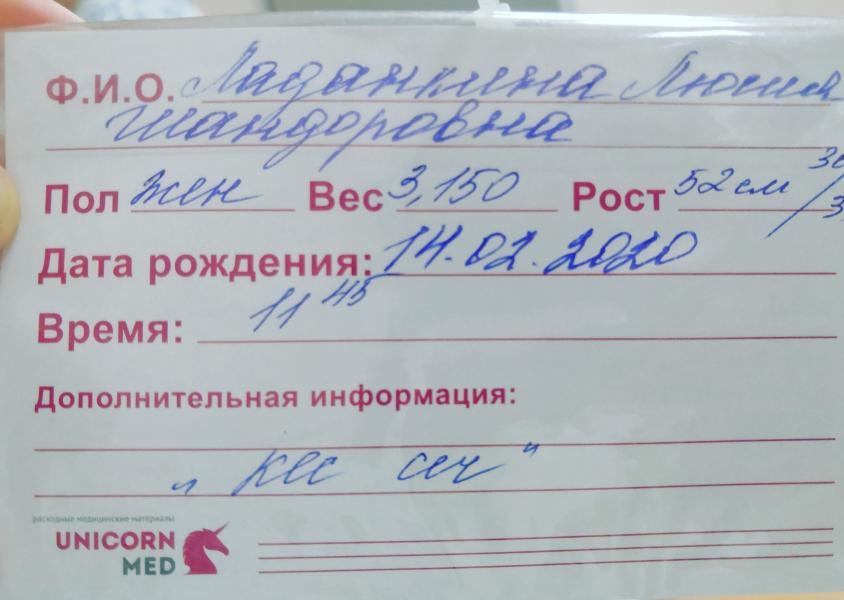 Ф.И.О. Ладанкина Люсия
Шандоровна
Пол жен Вес 3,150 Рост 52 см /
Дата рождения: 14.02.2020
Время: 11 45
Дополнительная информация:
„ кес сеч "
расходные медицинские материалы
UNICORN
MED